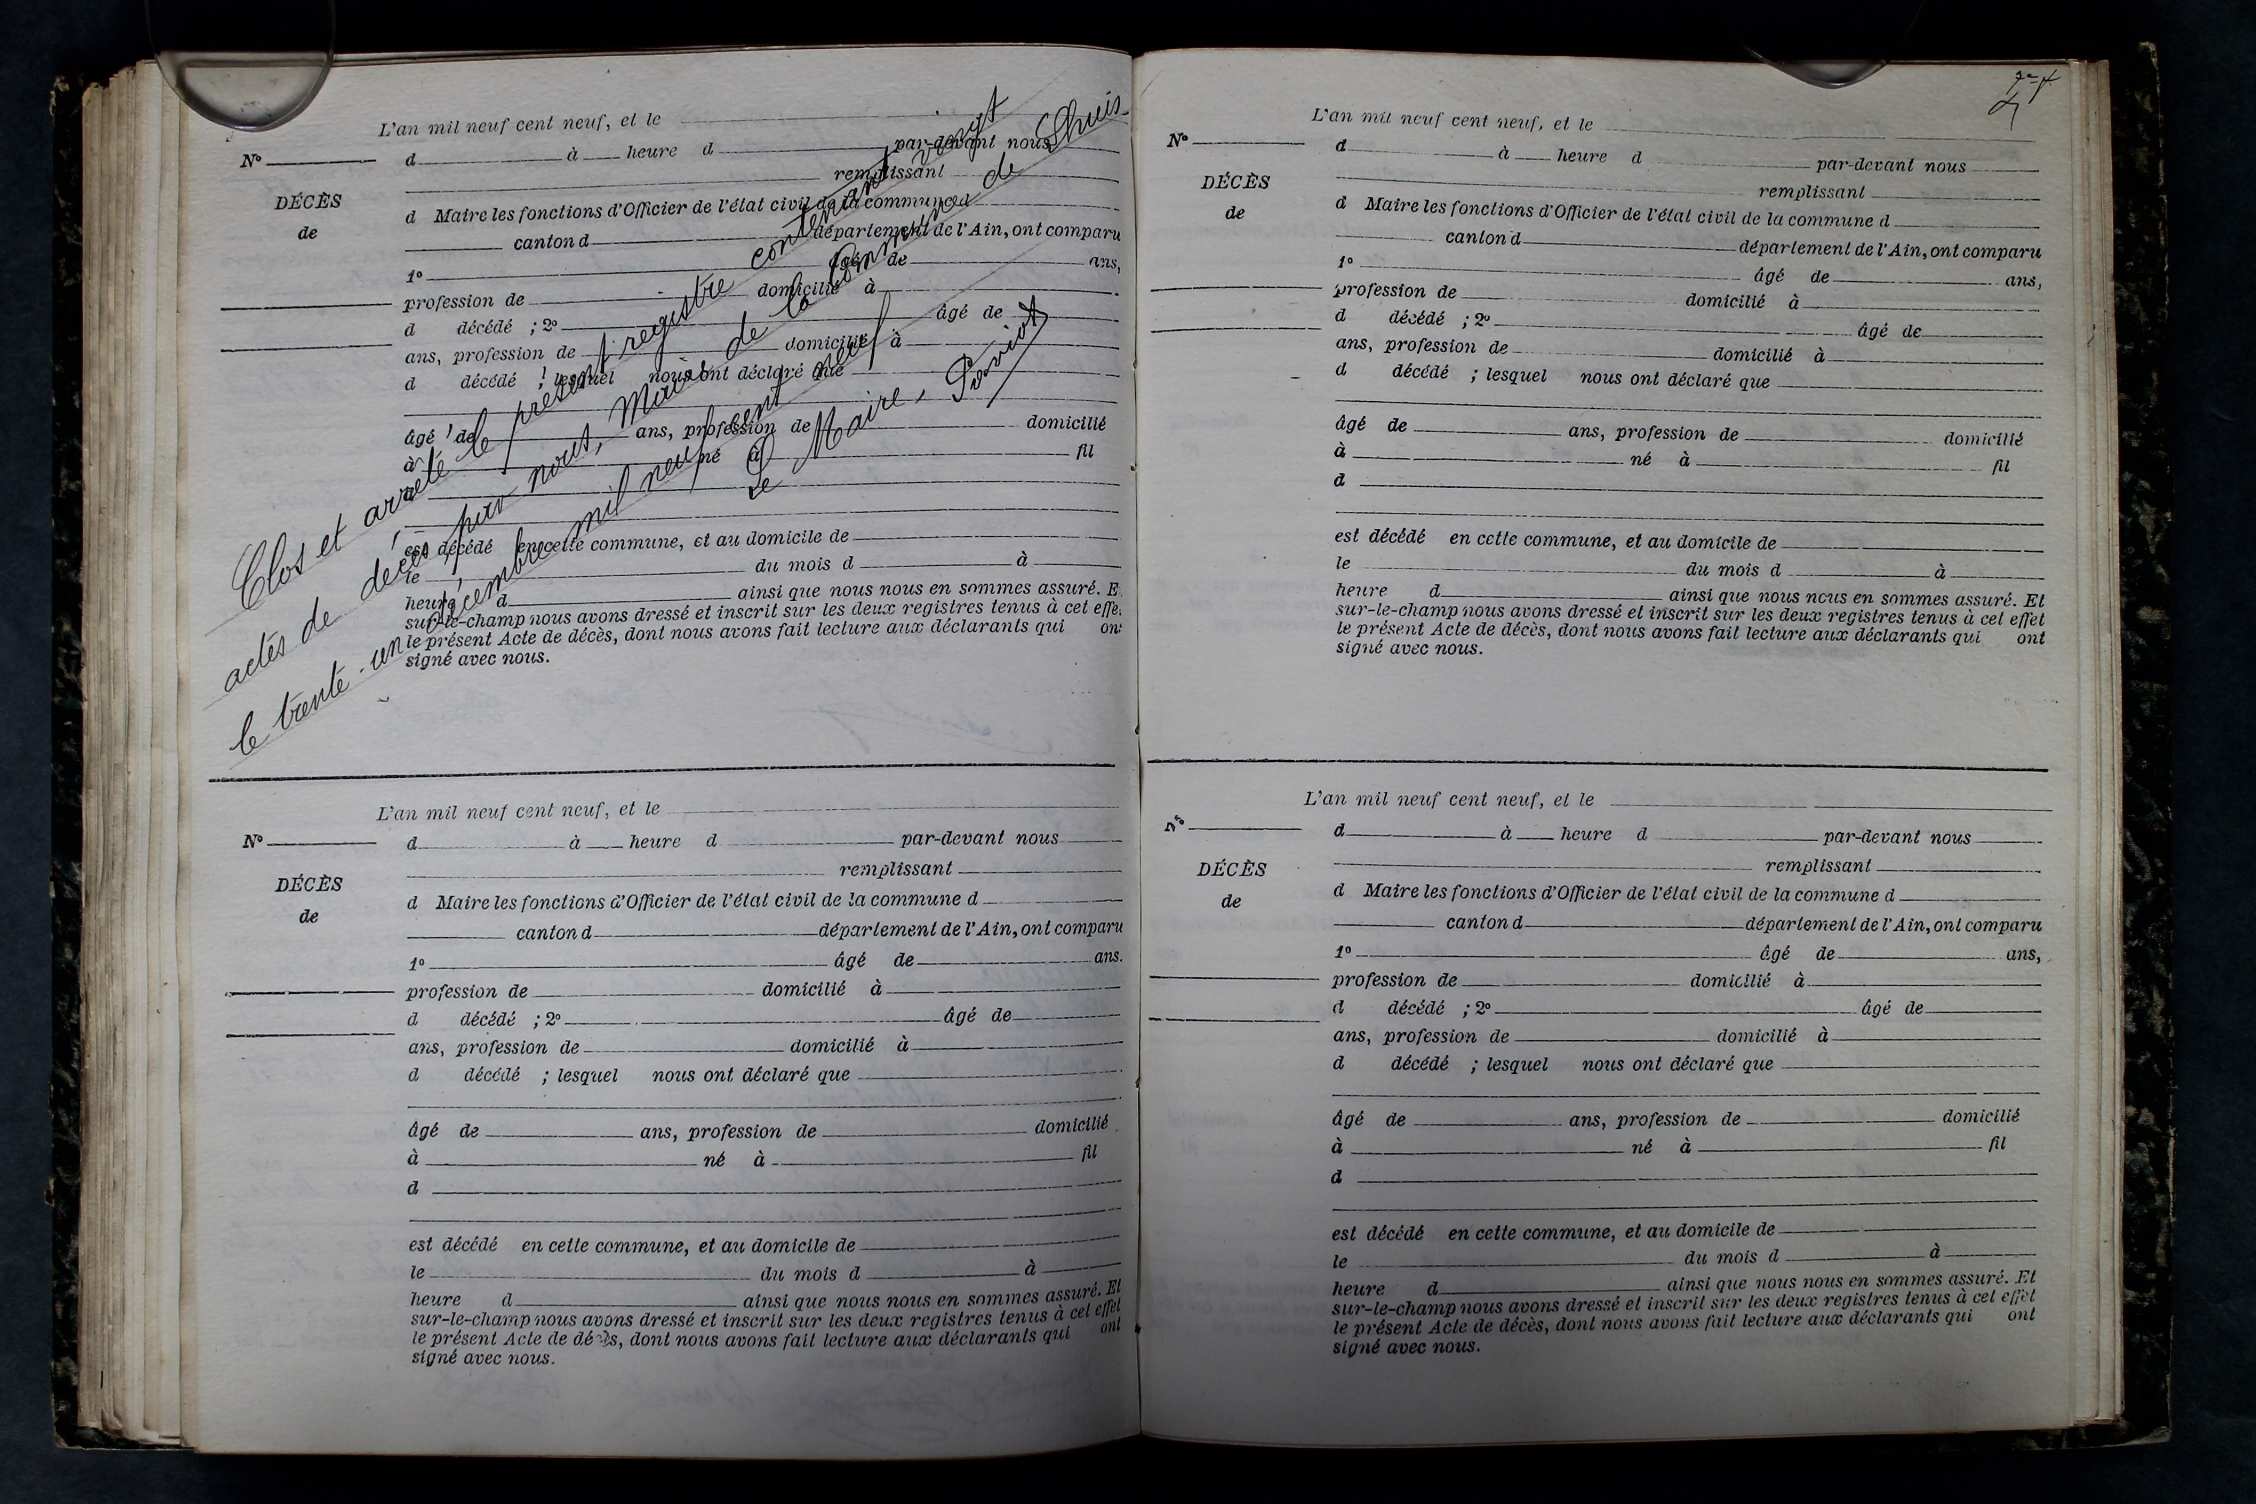 L'an mil neuf cent neuf, et le
N°
d à heure d par-devant nous
remplissant
DÉCÈS
d Maire les fonctions d'Officier de l'état civil de la commune d
de
canton d département de l'Ain, ont comparu
1° âgé de ans,
profession de domicilié à
d décédé ; 2° âgé de
ans, profession de domicilié à
d décédé ; lesquel nous ont déclaré que
âgé de ans, profession de domicilié
à né à fil
d
est décédé en cette commune, et au domicile de
le du mois d à
heure d ainsi que nous nous en sommes assuré. E
sur-le-champ nous avons dressé et inscrit sur les deux registres tenus à cet effe
le présent Acte de décès, dont nous avons fait lecture aux déclarants qui on
signé avec nous.
Clos et arrêté le présent registre contenant vingt
actes de décès par nous, Maire de la Commune de
le trente-un décembre mil neuf cent neuf
Le Maire,
L'an mil neuf cent neuf, et le
N°
d à heure d par-devant nous
remplissant
DÉCÈS
d Maire les fonctions d'Officier de l'état civil de la commune d
de
canton d département de l'Ain, ont comparu
1° âgé de ans.
profession de domicilié à
d décédé ; 2° âgé de
ans, profession de domicilié à
d décédé ; lesquel nous ont déclaré que
âgé de ans, profession de domicilié
à né à fil
d
est décédé en cette commune, et au domicile de
le du mois d à
heure d ainsi que nous nous en sommes assuré. Et
sur-le-champ nous avons dressé et inscrit sur les deux registres tenus à cet effet
le présent Acte de décès, dont nous avons fait lecture aux déclarants qui ont
signé avec nous.
L'an mil neuf cent neuf, et le
N°
d à heure d par-devant nous
remplissant
DÉCÈS
d Maire les fonctions d'Officier de l'état civil de la commune d
de
canton d département de l'Ain, ont comparu
1° âgé de ans,
profession de domicilié à
d décédé ; 2° âgé de
ans, profession de domicilié à
d décédé ; lesquel nous ont déclaré que
âgé de ans, profession de domicilié
à né à fil
d
est décédé en cette commune, et au domicile de
le du mois d à
heure d ainsi que nous nous en sommes assuré. Et
sur-le-champ nous avons dressé et inscrit sur les deux registres tenus à cet effet
le présent Acte de décès, dont nous avons fait lecture aux déclarants qui ont
signé avec nous.
L'an mil neuf cent neuf, et le
N°
d à heure d par-devant nous
remplissant
DÉCÈS
d Maire les fonctions d'Officier de l'état civil de la commune d
de
canton d département de l'Ain, ont comparu
1° âgé de ans,
profession de domicilié à
d décédé ; 2° âgé de
ans, profession de domicilié à
d décédé ; lesquel nous ont déclaré que
âgé de ans, profession de domicilié
à né à fil
d
est décédé en cette commune, et au domicile de
le du mois d à
heure d ainsi que nous nous en sommes assuré. Et
sur-le-champ nous avons dressé et inscrit sur les deux registres tenus à cet effet
le présent Acte de décès, dont nous avons fait lecture aux déclarants qui ont
signé avec nous.